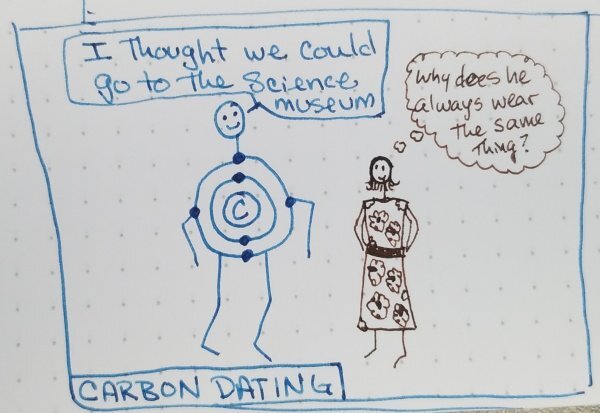 I Thought we could
go to the science
museum
why does he
always wear
the same
thing?
C
CARBON DATING